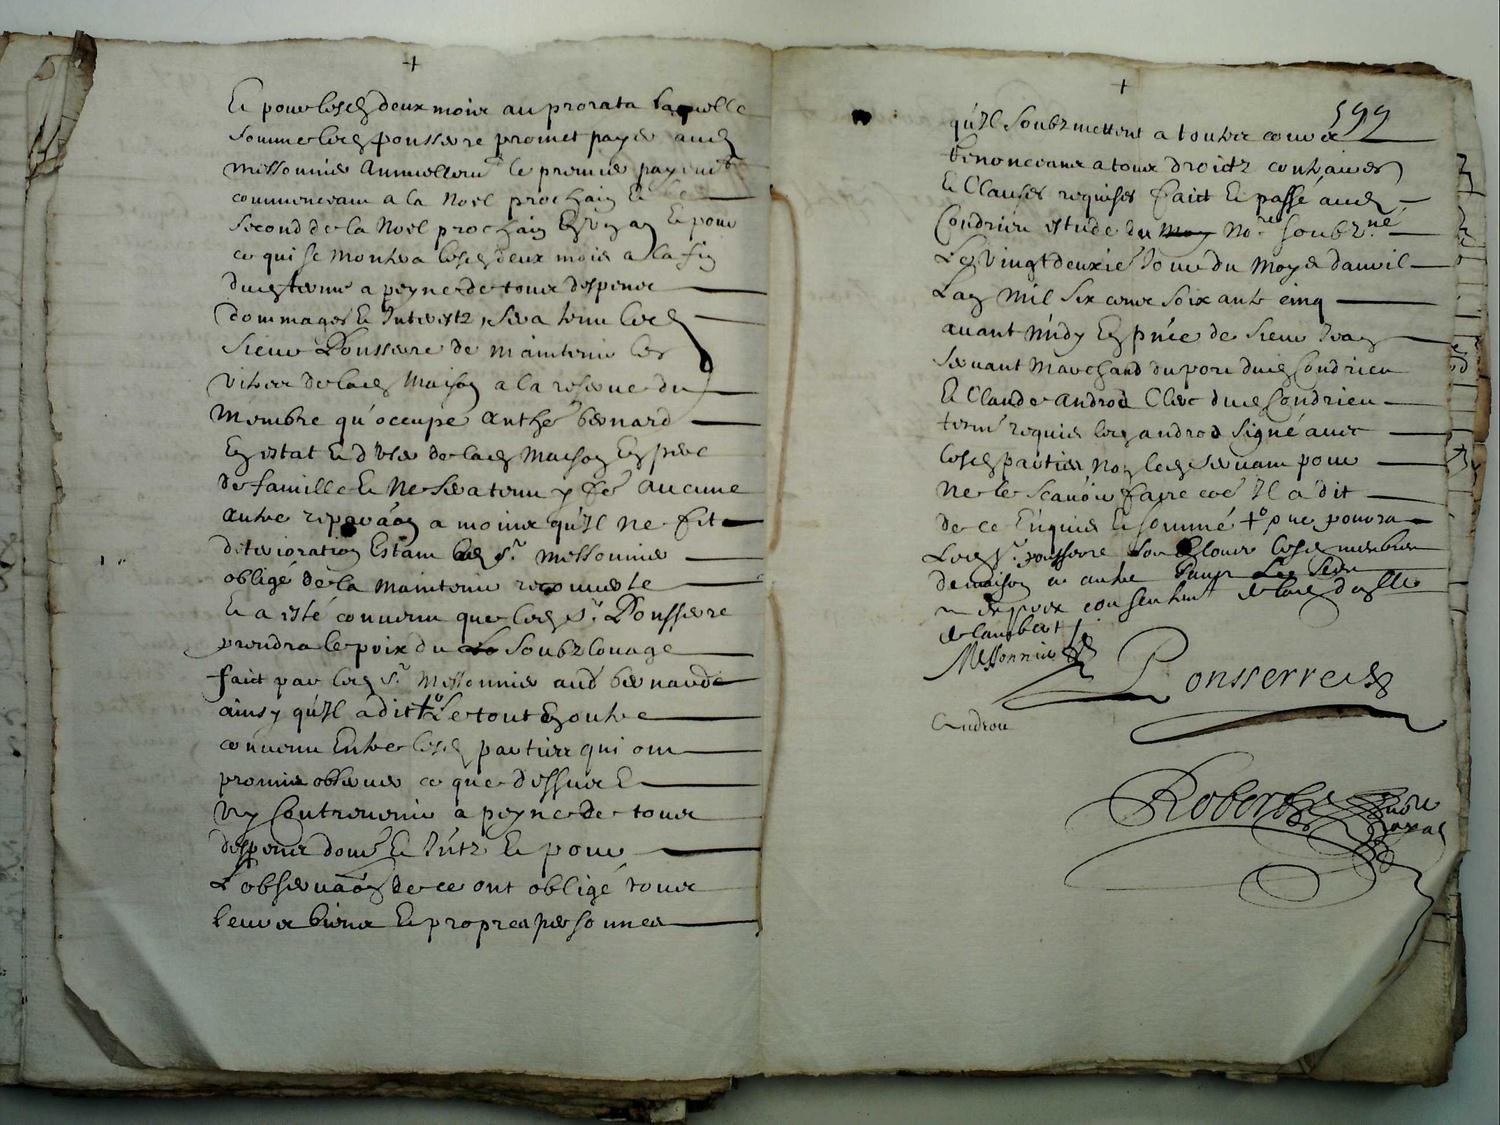 +
Et pour lesd deux mois au prorata laquelle
somme led ponsserre promet payer aud
Messonnier Annuellemt le premier payemt
commenceant a la Noel prochain Et le
second de la Noel prochain En un an Et pour
ce qui se monstrera lesd deux mois a la fin
dud terme a peyne de tous despens
dommages Et Interestz, sera tenu led
sieur Ponsserre de maintenir les
vitres de lad Maison a la reserve du
Membre qu'occupe Anthe bernard
En estat Et d'user de lad Maison En pere
de famille Et Ne sera tenu y fe aucune
autre reparaon a moins qu'Il ne fit
deterioration Estant led sr Messonnier
obligé de la maintenir
Et a esté convenu que led sr Ponsserre
prendra le prix du soubzlouage
faict par led sr Messonnier aud bernard
ainsy qu'Il a dit +o Le tout En oultre
convenu Entre lesd parties qui ont
promis observer ce que dessus Et
n'y Contrevenir a peyne de tous
despens dome Et Intz Et pour
L'observaon de ce ont obligé tous
leurs biens Et propres personnes
+
599
qu'Il soubzmettent a toutes cours
Renonceans a tous droictz contraires
Et Clauses requises faict Et passé aud
Condrieu estude du Nore soubzné
Le vingt deuxie Jour du Moys d'avril
L'an Mil six cens soixante cinq
avant Midy En pnce de sieur Jean
servant Marchand du port dud Condrieu
Et Claude androd Clerc dud Condrieu
tesm requis led androd signé avec
lesd parties Non led servant pour
ne le scavoir faire co Il a dit
de ce Enquis Et sommé +o que pourra
Led sr ponsserre louer lesd membres
de maison a autre
de lambert
Messonnier
Ponsserre
Androu
Robert
Nore
Royal